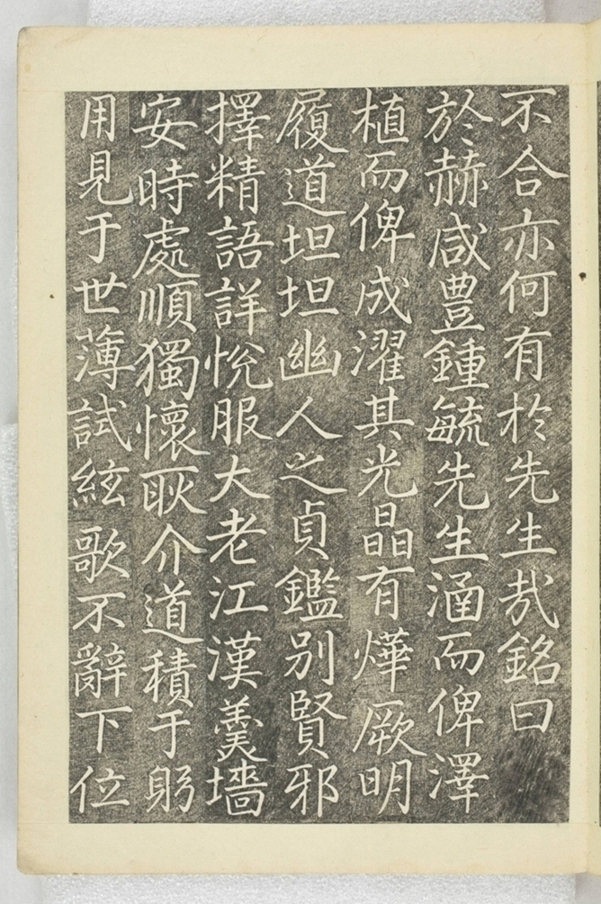 不合亦何有於先生哉銘曰
於赫咸豊鍾毓先生涵而俾澤
植而俾成濯其光晶有燁厥明
履道坦坦幽人之貞鑑別賢邪
擇精語詳悅服大老江漢羹墻
安時處順獨懷耿介道積于躬
用見于世薄試絃歌不辭下位